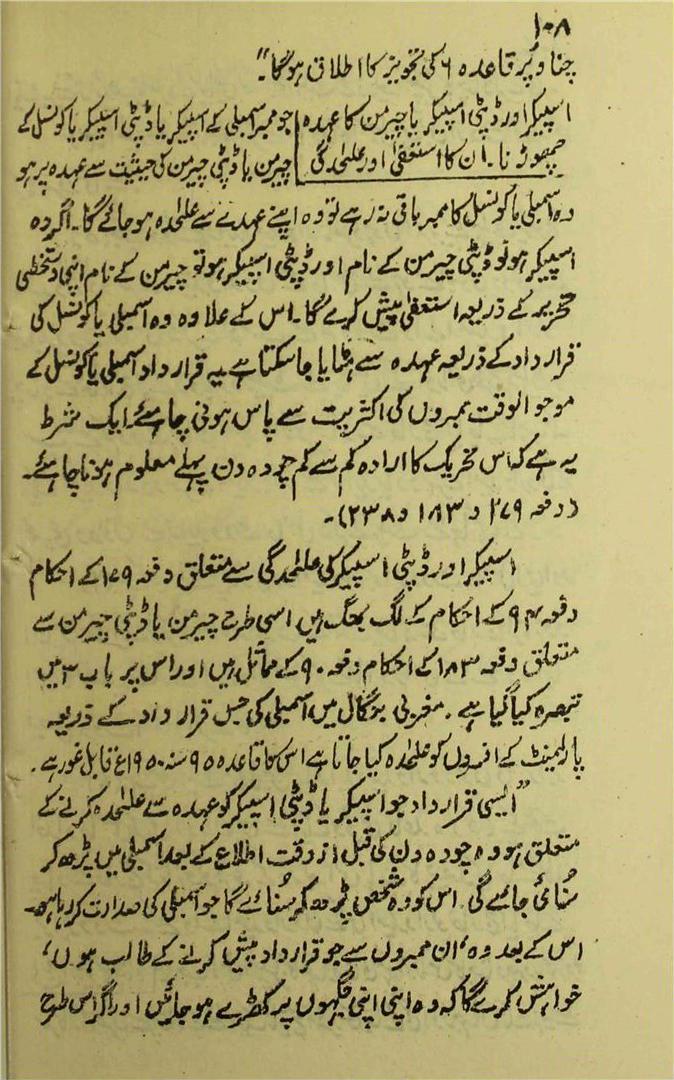 ۱۰۸
چناو پر قاعدہ ۶ کی تجویز کا اطلاق ہوگا۔"
اسپیکر اور ڈپٹی اسپیکر یا چیرمن کا عہدہ جو ممبر اسمبلی کے اسپیکر یا ڈپٹی اسپیکر یا کونسل کے
چھوڑنا۔ ان کا استعفیٰ اور علٰحدگی چیرمن یا ڈپٹی چیرمن کی حیثیت سے عہدہ پر ہو
وہ اسمبلی یا کونسل کا ممبر باقی نہ رہے تو وہ اپنے عہدے سے علٰحدہ ہو جائے گا۔ اگر وہ
اسپیکر ہو تو ڈپٹی چیرمن کے نام اور ڈپٹی اسپیکر ہو تو چیرمن کے نام اپنی دستخطی
تحریر کے ذریعہ استعفیٰ پیش کرے گا۔ اس کے علاوہ وہ اسمبلی یا کونسل کی
قرار داد کے ذریعہ عہدہ سے ہٹایا جا سکتا ہے یہ قرار داد اسمبلی یا کونسل کے
موجو الوقت ممبروں کی اکثریت سے پاس ہونی چاہئے۔ ایک شرط
یہ ہے کہ اس تحریک کا ارادہ کم سے کم چودہ دن پہلے معلوم ہونا چاہئے۔
(دفعہ ۱۷۹ و ۱۸۳ و ۲۳۸)۔
اسپیکر اور ڈپٹی اسپیکر کی علٰحدگی سے متعلق دفعہ ۱۷۹ کے احکام
دفعہ ۹۴ کے احکام کے لگ بھگ ہیں اسی طرح چیرمن یا ڈپٹی چیرمن سے
متعلق دفعہ ۱۸۳ کے احکام دفعہ ۹۰ کے مماثل ہیں اور اس پر باب ۳ میں
تبصرہ کیا گیا ہے۔ مغربی بوگال میں اسمبلی کی جس قرار داد کے ذریعہ
پارلیمنٹ کے افسروں کو علٰحدہ کیا جاتا ہے اس کا قاعدہ ۹۵ سنہ ۱۹۵۰ع قابل غور ہے۔
"ایسی قرار داد جو اسپیکر یا ڈپٹی اسپیکر کو عہدہ سے علٰحدہ کرنے کے
متعلق ہو وہ چودہ دن کی قبل از وقت اطلاع کے بعد اسمبلی میں پڑھ کر
سُنائی جائے گی اس کو وہ شخص پڑھ کر سُنائے گا جو اسمبلی کی صدارت کر رہا ہو۔
اس کے بعد وہ، ان ممبروں سے جو قرار داد پیش کرنے کے طالب ہوں،
خواہش کرے گا کہ وہ اپنی اپنی جگہوں پر کھڑے ہو جائیں اور اگر اس طرح